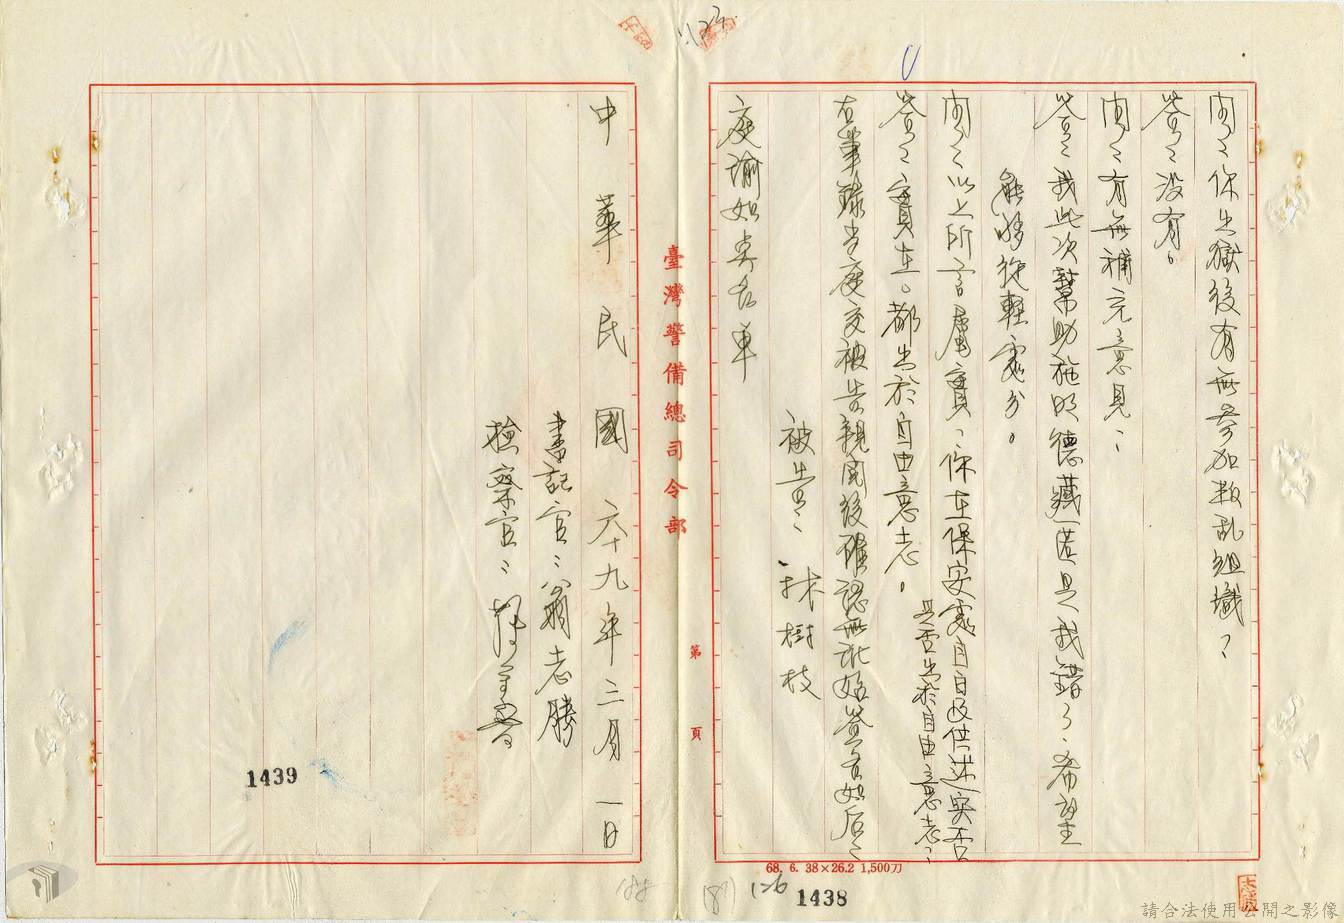 問：你出獄後有無參加叛乱組織？
答：没有。
問：有無補充意見：
答：我此次幫助施明德藏匿是我錯了，希望
能够從輕處分。
問：以上所言屬實，你在保安處自白及供述实否
是否出於自由意志：
答：實在。都出於自由意志。
右筆錄当庭交被告親閱後確認無訛始簽名如后：
被告：林樹枝
庭諭如安名单
臺灣警備總司令部
第 頁
中華民國六十九年三月一日
書記官：翁志勝
檢察官：
68. 6. 38×26.2 1,500刀
1438
1439
126
請合法使用公開之影像